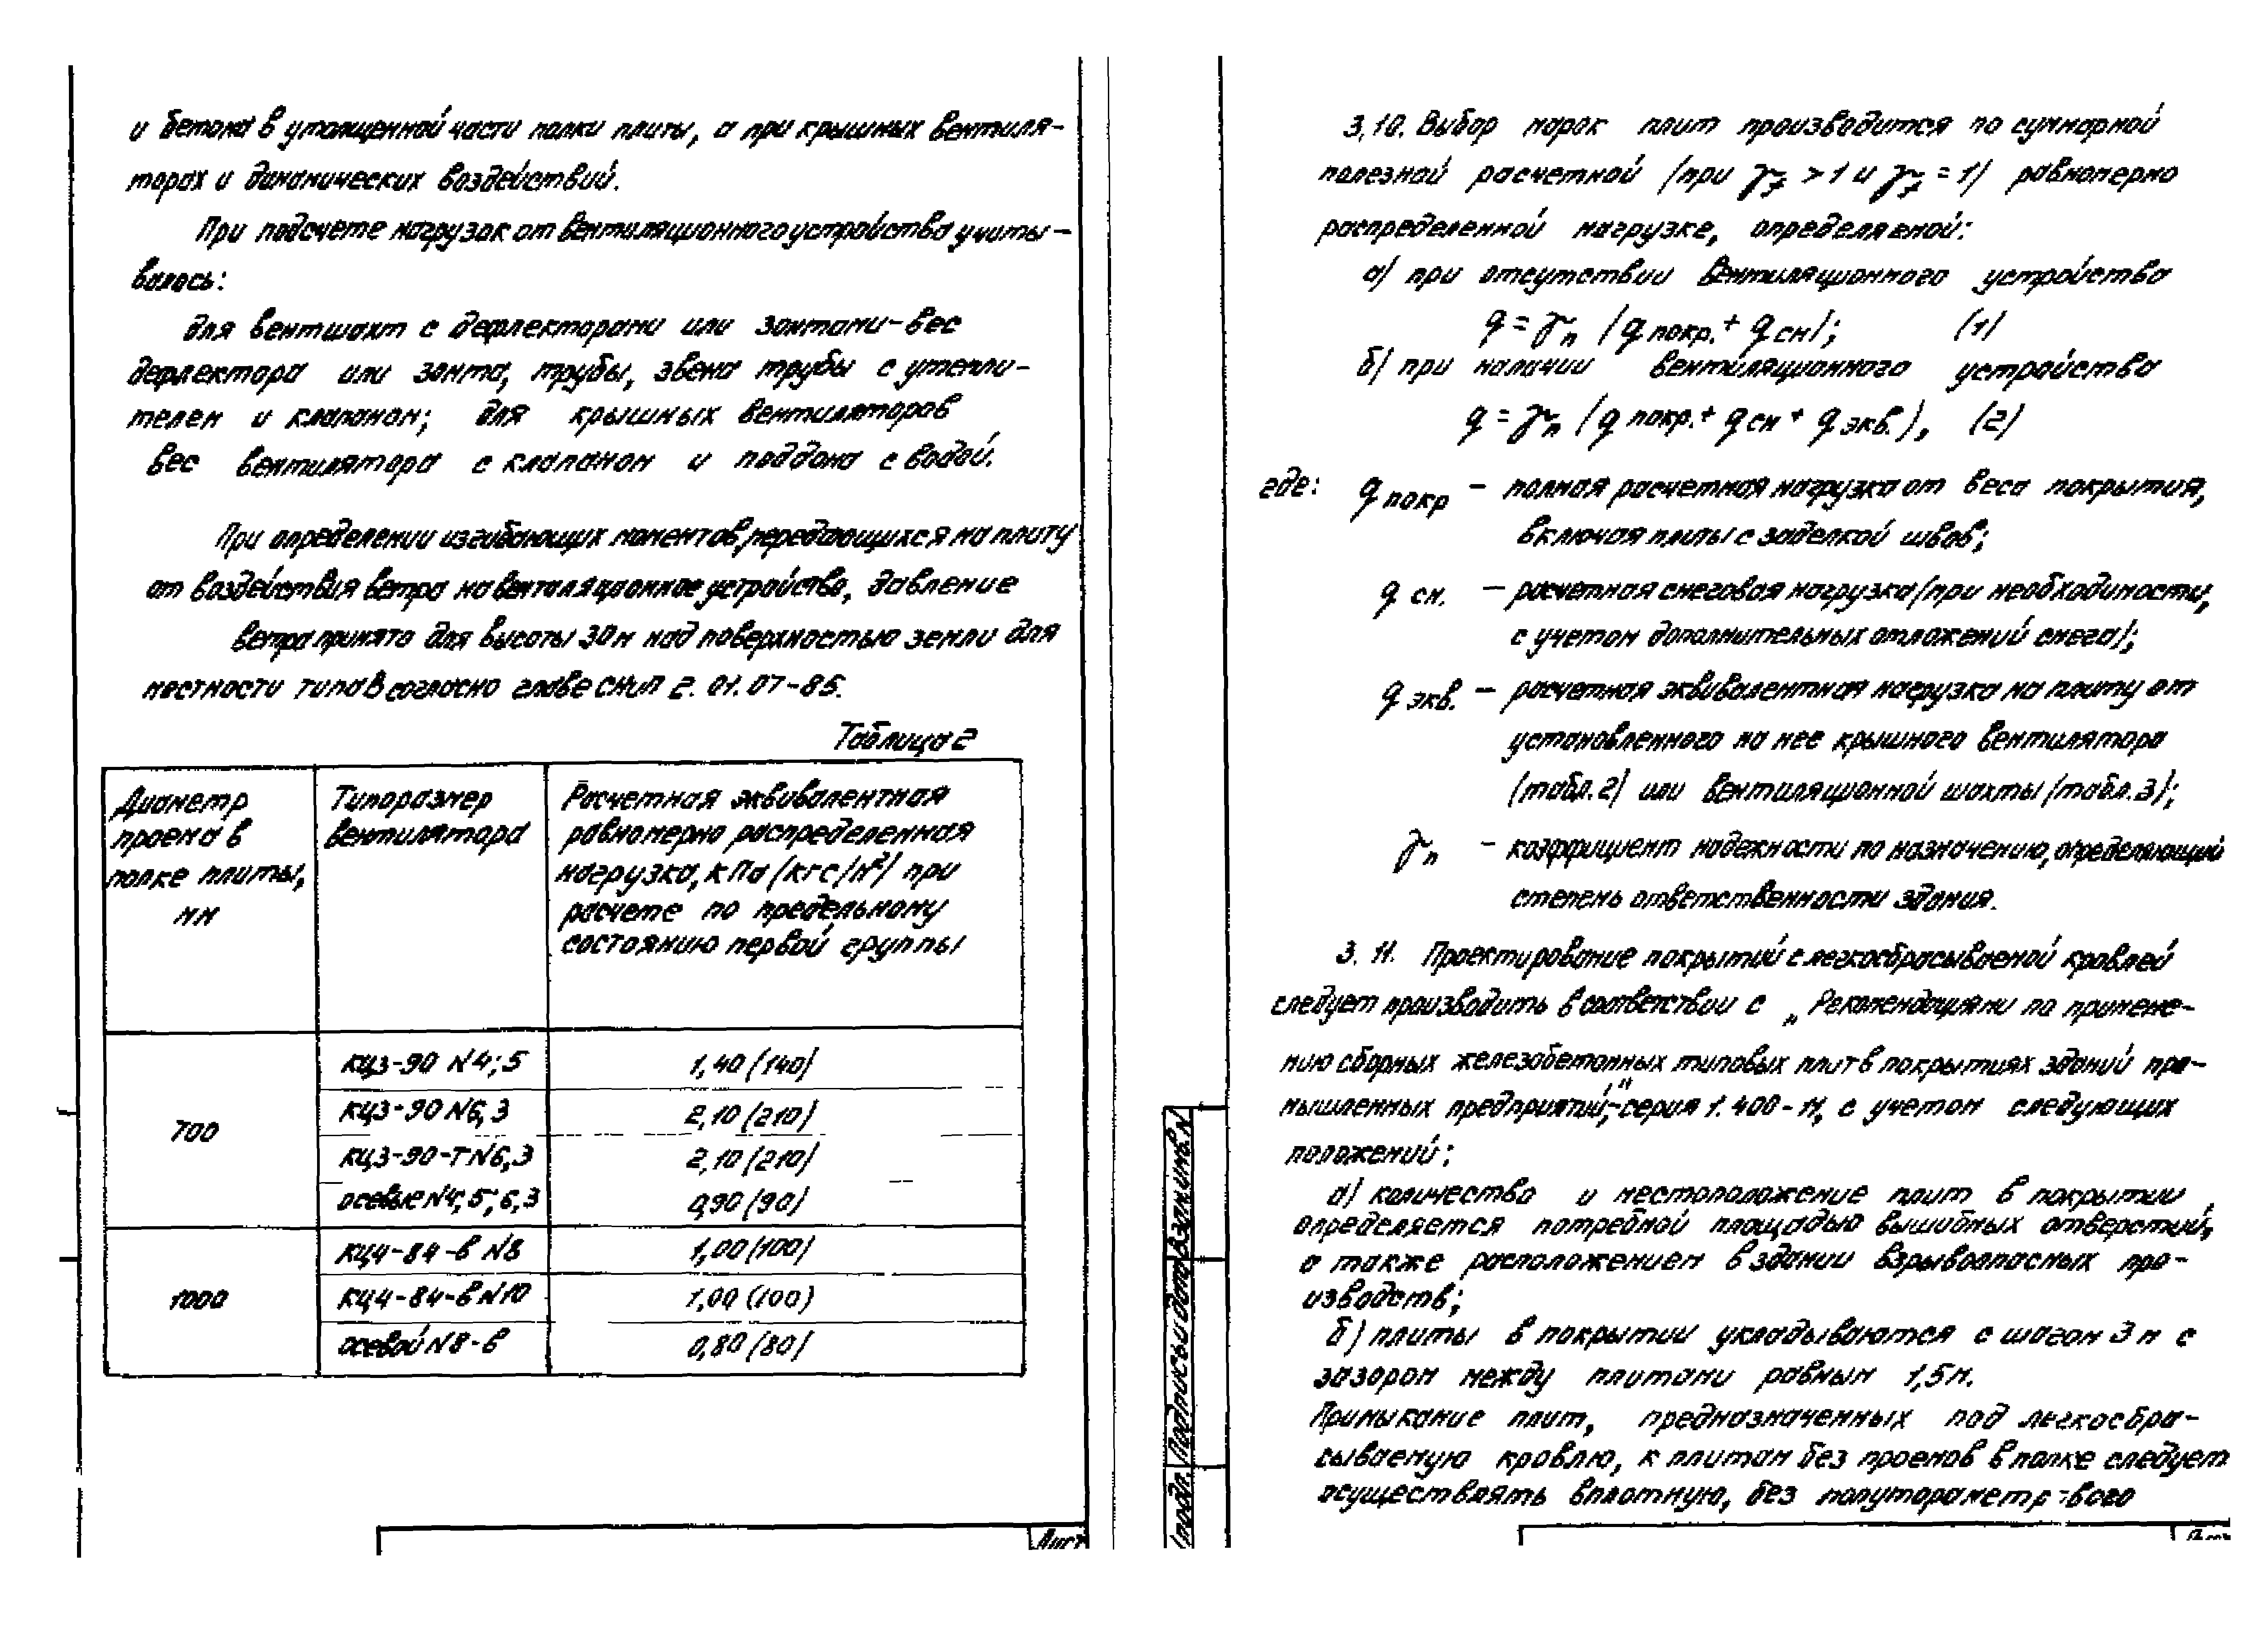 и бетона в утолщенной части полки плиты, а при крышных вентиля-
торах и динамических воздействий.
При подсчете нагрузок от вентиляционного устройства учиты-
валось:
для вентшахт с дефлекторами или зонтами-вес
дефлектора или зонта, трубы, звена трубы с утепли-
телем и клапаном; для крышных вентиляторов
вес вентилятора с клапаном и поддона с водой.
При определении изгибающих моментов, передающихся на плиту
от воздействия ветра на вентиляционное устройство, давление
ветра принято для высоты 30м над поверхностью земли для
местности типа В согласно главе СНиП 2.01.07-85.
Таблица 2
Диаметр
проема в
полке плиты,
мм
Типоразмер
вентилятора
Расчетная эквивалентная
равномерно распределенная
нагрузка, кПа (кгс/м²) при
расчете по предельному
состоянию первой группы
700
КЦ3-90 №4; 5
1,40 (140)
КЦ3-90 №6,3
2,10 (210)
КЦ3-90-Т №6,3
2,10 (210)
осевые №4; 5; 6,3
0,90 (90)
1000
КЦ4-84-в №8
1,00 (100)
КЦ4-84-в №10
1,00 (100)
осевой №8-в
0,80 (80)
Лист
3.10. Выбор марок плит производится по суммарной
полезной расчетной (при γf > 1 и γf = 1) равномерно
распределенной нагрузке, определяемой:
а) при отсутствии вентиляционного устройства
q = γn (q покр. + q сн); (1)
б) при наличии вентиляционного устройства
q = γn (q покр. + q сн + q экв.), (2)
где: q покр – полная расчетная нагрузка от веса покрытия,
включая плиты с заделкой швов;
q сн. – расчетная снеговая нагрузка (при необходимости,
с учетом дополнительных отложений снега);
q экв. – расчетная эквивалентная нагрузка на плиту от
установленного на нее крышного вентилятора
(табл. 2) или вентиляционной шахты (табл. 3);
γn – коэффициент надежности по назначению, определяющий
степень ответственности здания.
3.11. Проектирование покрытий с легкосбрасываемой кровлей
следует производить в соответствии с „Рекомендациями по примене-
нию сборных железобетонных типовых плит в покрытиях зданий про-
мышленных предприятий", -серия 1.400-11, с учетом следующих
положений:
а) количество и местоположение плит в покрытии
определяется потребной площадью вышибных отверстий,
а также расположением в здании взрывоопасных про-
изводств;
б) плиты в покрытии укладываются с шагом 3м с
зазором между плитами равным 1,5м.
Примыкание плит, предназначенных под легкосбра-
сываемую кровлю, к плитам без проемов в полке следует
осуществлять вплотную, без полутораметрового
подл. Подпись и дата Взам.инв.N